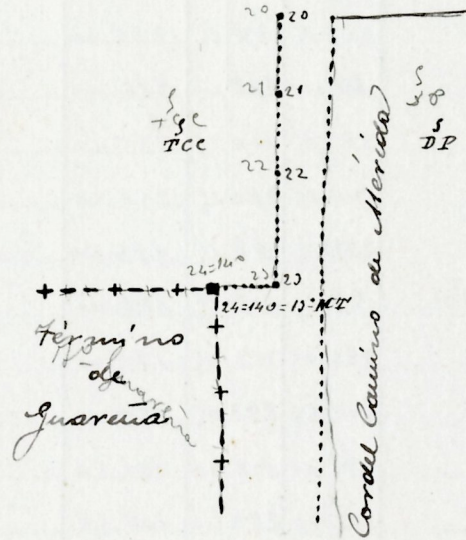 20 20
21 21
TCC
DP
22 22
24=14º
23 23
24=14º=13ºMCT
Término
de
Guareña
Cordel Camino de Mérida